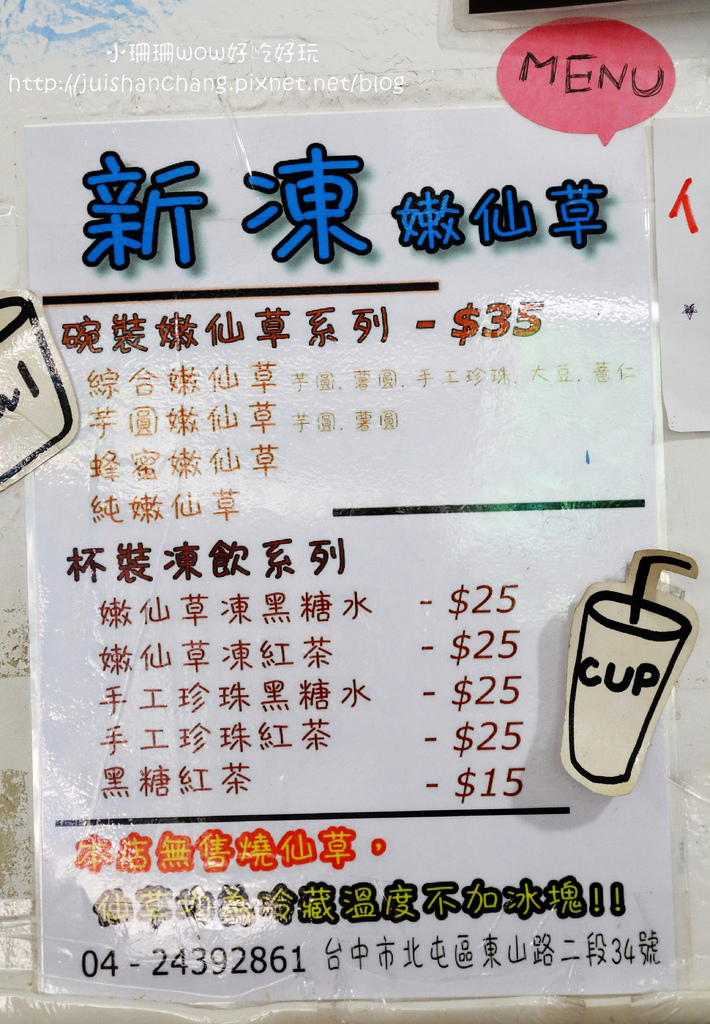 小珊珊wow好吃好玩
http://juishanchang.pixnet.net/blog
MENU
新凍 嫩仙草
碗裝嫩仙草系列 - $35
綜合嫩仙草 芋圓.薯圓.手工珍珠.大豆.薏仁
芋圓嫩仙草 芋圓.薯圓
蜂蜜嫩仙草
純嫩仙草
杯裝凍飲系列
嫩仙草凍黑糖水 - $25
嫩仙草凍紅茶 - $25
手工珍珠黑糖水 - $25
手工珍珠紅茶 - $25
黑糖紅茶 - $15
CUP
本店無售燒仙草。
仙草均為冷藏溫度不加冰塊!!
04 - 24392861 台中市北屯區東山路二段34號